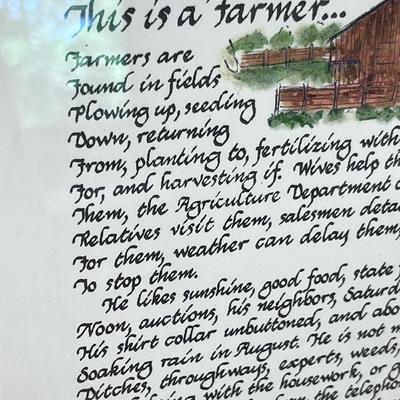 This is a farmer...
Farmers are
Found in fields
Plowing up, seeding
Down, returning
From, planting to, fertilizing with
For, and harvesting if. Wives help th
Them, the Agriculture Department
Relatives visit them, salesmen deta
For them, weather can delay them,
To stop them.
He likes sunshine, good food, state
Noon, auctions, his neighbors, Saturd
His shirt collar unbuttoned, and abo
Soaking rain in August. He is not m
Ditches, throughways, experts, weeds,
with the housework, or
the telepho